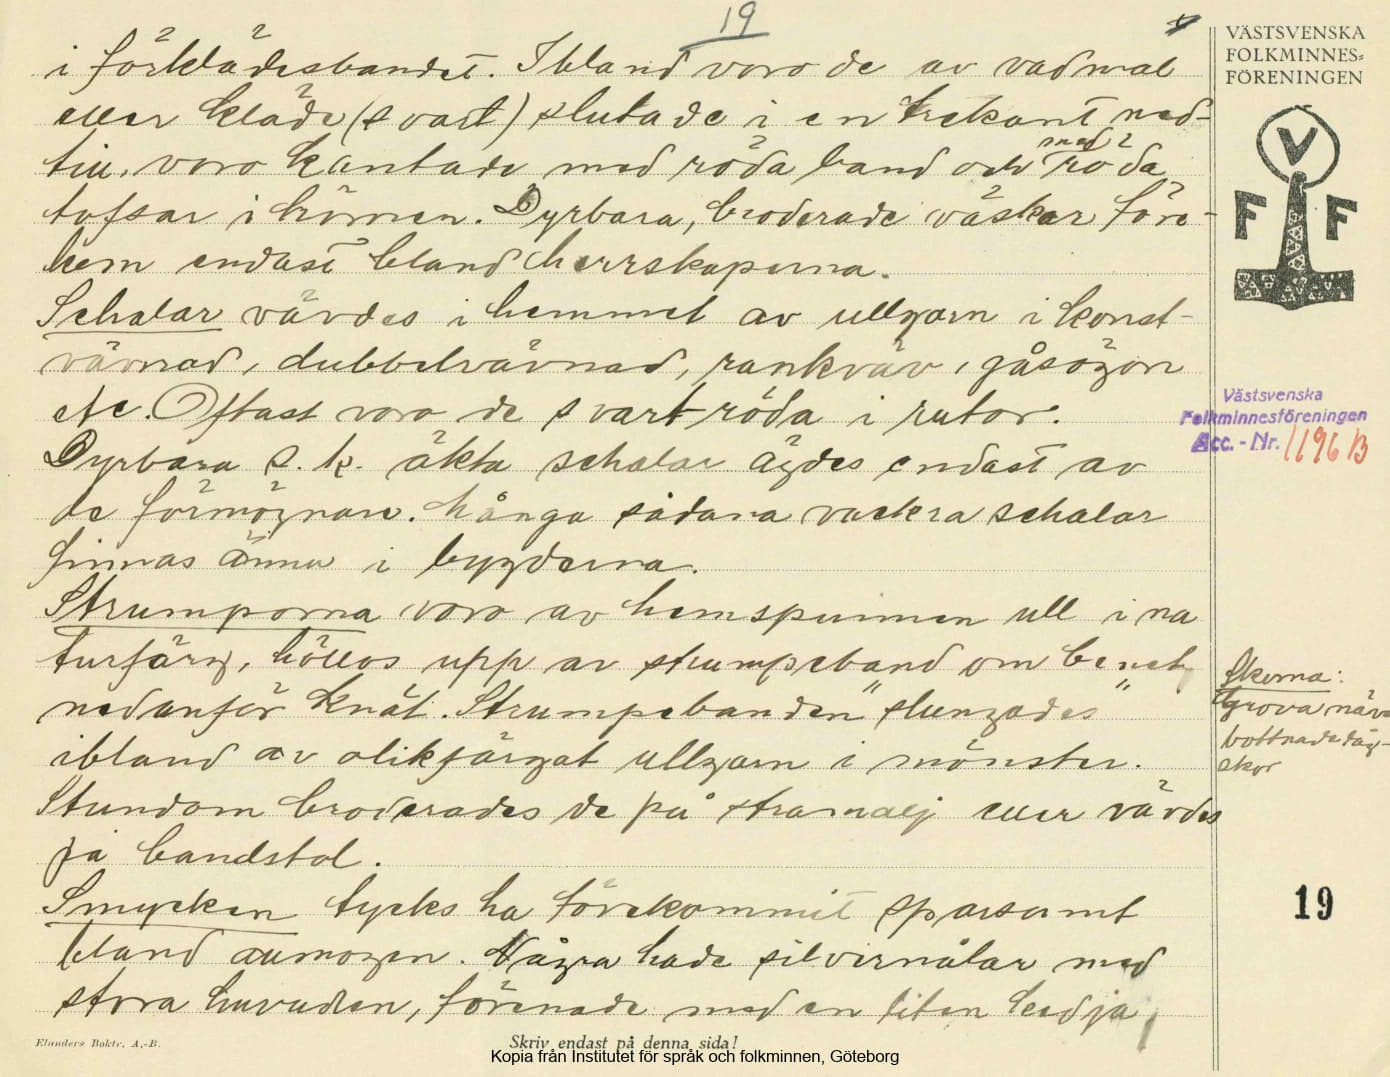 19
i förklädesbandet. Ibland voro de av vadmal
eller kläde (svart) slutade i en trekant ned-
till, voro kantade med röda band och med röda
tofsar i hörnen. Dyrbara, broderade väskor före-
kom endast bland herrskaperna.
Schalar vävdes i hemmet av ullgarn i konst-
vävnad, dubbelvävnad, rankväv, gåsögon
etc. Oftast voro de svart röda i rutor.
Dyrbara s.k. äkta schalar ägdes endast av
de förmögnare. Många sådana vackra schalar
finnas ännu i bygderna.
Strumporna voro av hemspunnen ull i na
turfärg, höllos upp av strumpeband om benet,
nedanför knät. Strumpebanden "slungades"
ibland av olikfärgat ullgarn i mönster.
Stundom broderades de på stramalj eller vävdes
på bandstol.
Smycken tycks ha förekommit sparsamt
bland allmogen. Några hade silvernålar med
stora huvuden, förenade med en liten kedja,
Elanders Boktr. A.-B.
Skriv endast på denna sida!
Kopia från Institutet för språk och folkminnen, Göteborg
VÄSTSVENSKA
FOLKMINNES=
FÖRENINGEN
V
F F
Västsvenska
Folkminnesföreningen
Acc. - Nr. 1196 B
Skorna:
grova näv
bottnade
skor
19